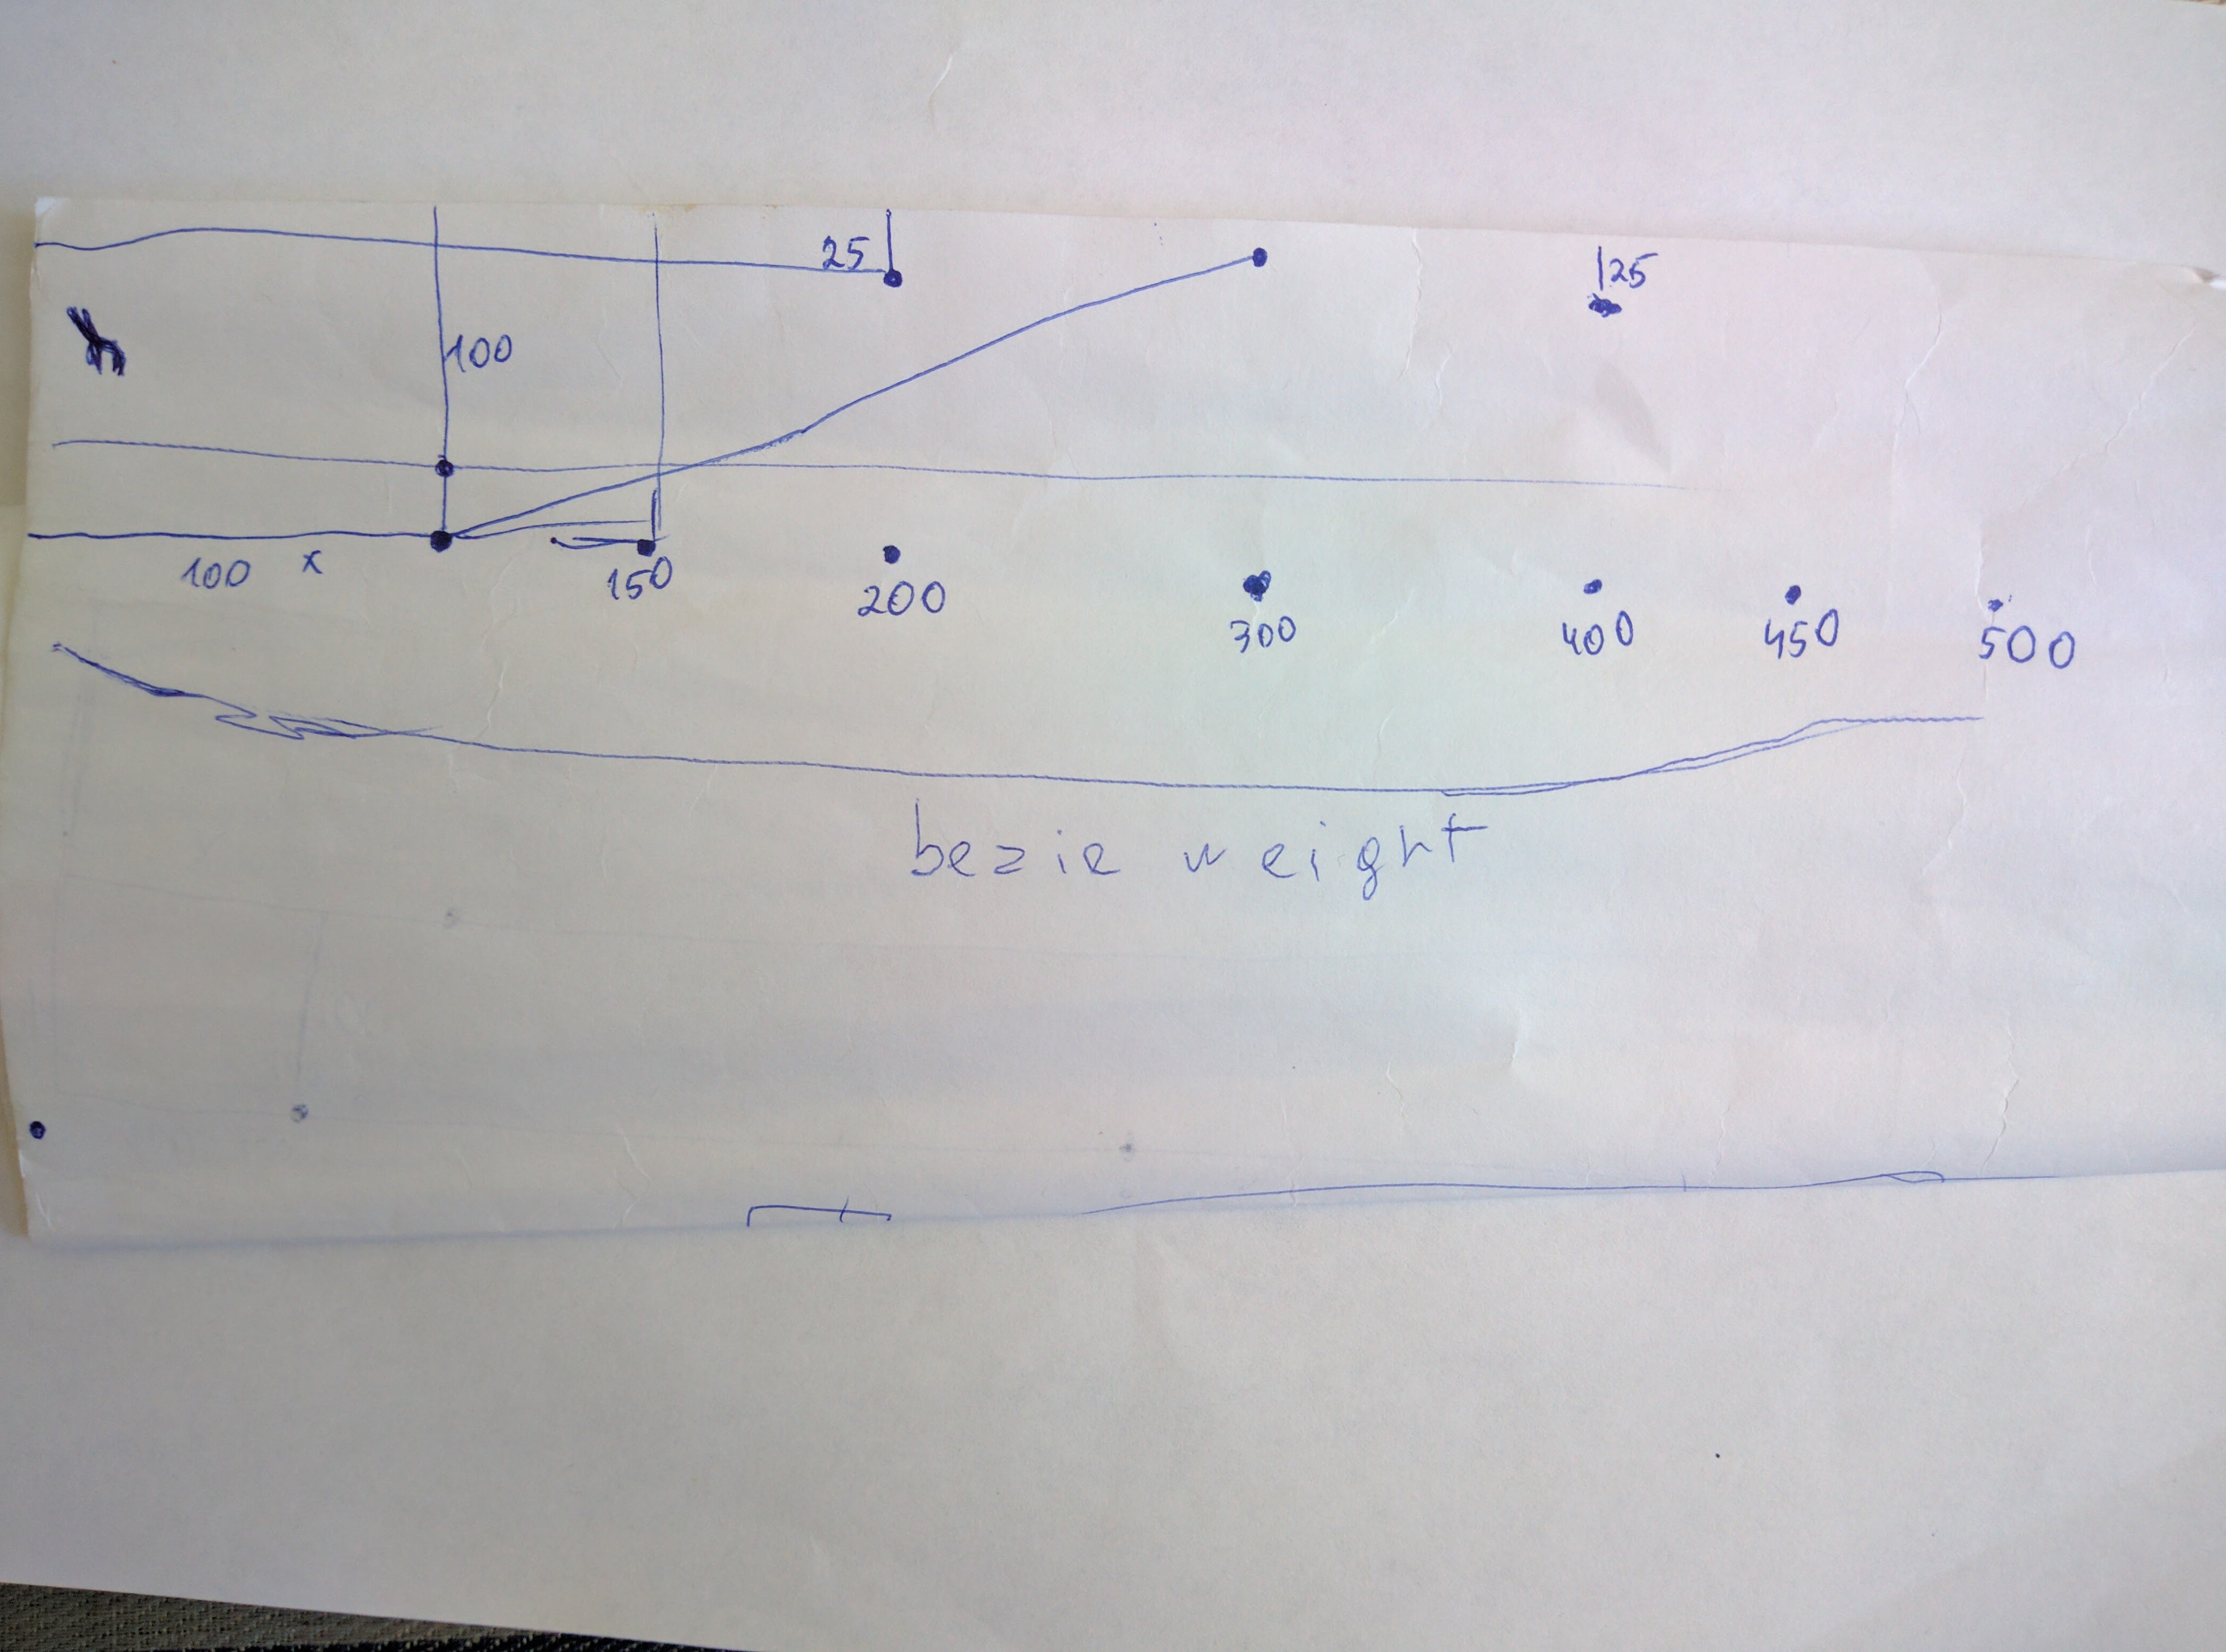 25
25
100
100 x
150
200
300
400
450
500
bezie weight